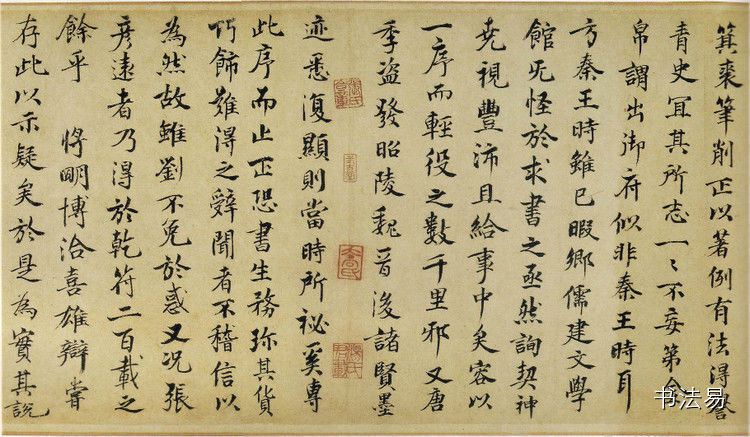 箕裘筆削正以著例有法得
青史冝其所志一々不妄第今
帛謂出御府似非秦王時耳
方秦王時雖已暇鄉儒建文學
館旡怪於求書之亟然詢契神
尭視豐沛且給事中矣容以
一序而輕役之數千里邪又唐
季盜發昭陵魏晉後諸賢墨
迹悉復顯則當時所祕奚專
此序而止正恐書生務珎其貨
巧飾難得之辭聞者不稽信以
為然故雖劉不免於惑又况張
彥遠者乃得於乾符二百載之
餘乎 將明博洽喜雄辯嘗
存此以示疑矣於是為實其說
书法易